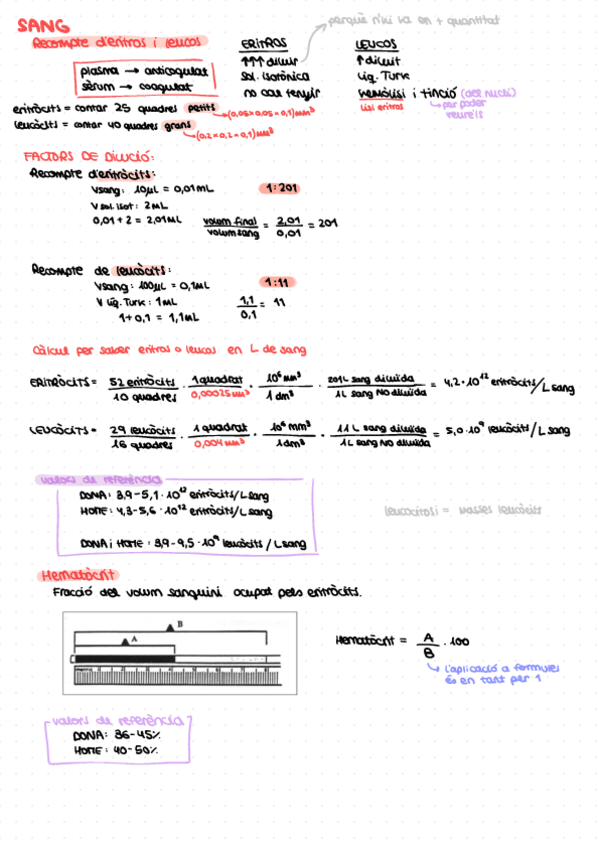 SANG
perquè n'hi ha en + quantitat
Recompte d'eritros i leucos
ERITROS
LEUCOS
plasma → anticoagulat
sèrum → coagulat
↑↑↑ diluir
sol. isotònica
no cal tenyir
↑ diluit
Líq. Turk
Hemòlisi i tinció (del nucli)
lisi eritros
per poder veure'ls
eritròcits = contar 25 quadres petits
(0,05×0,05×0,1) mm³
leucòcits = contar 40 quadres grans
(0,2×0,2×0,1) mm³
FACTORS DE DILUCIÓ:
Recompte d'eritròcits:
Vsang: 10µL = 0,01mL
1:201
V sol. isot: 2mL
0,01+2 = 2,01mL
volum final / volum sang = 2,01 / 0,01 = 201
Recompte de leucòcits:
Vsang: 100µL = 0,1mL
1:11
V líq. Turk: 1mL
1+0,1 = 1,1mL
1,1 / 0,1 = 11
Càlcul per saber eritros o leucos en L de sang
ERITRÒCITS = 52 eritròcits / 10 quadres · 1 quadrat / 0,00025mm³ · 10⁶ mm³ / 1 dm³ · 201L sang diluïda / 1L sang NO diluïda = 4,2·10¹² eritròcits/L sang
LEUCÒCITS = 29 leucòcits / 16 quadres · 1 quadrat / 0,004mm³ · 10⁶ mm³ / 1dm³ · 11L sang diluïda / 1L sang NO diluïda = 5,0·10⁹ leucòcits/L sang
valors de referència
DONA: 3,9-5,1·10¹² eritròcits/L sang
HOME: 4,3-5,6·10¹² eritròcits/L sang
DONA i HOME: 3,9-9,5·10⁹ leucòcits/L sang
leucocitosi = masses leucòcits
Hematòcrit
Fracció del volum sanguini ocupat pels eritròcits.
B
A
Hematòcrit = A / B · 100
L'aplicació a formules
és en tant per 1
valors de referència
DONA: 36-45%
HOME: 40-50%